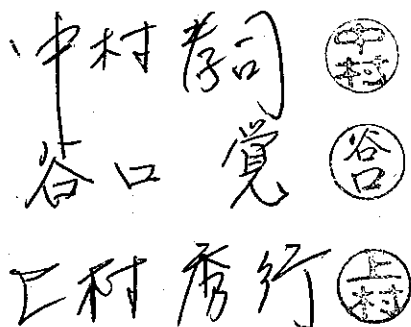 中村 孝司 中村
谷口 覚 谷口
上村 秀行 上村